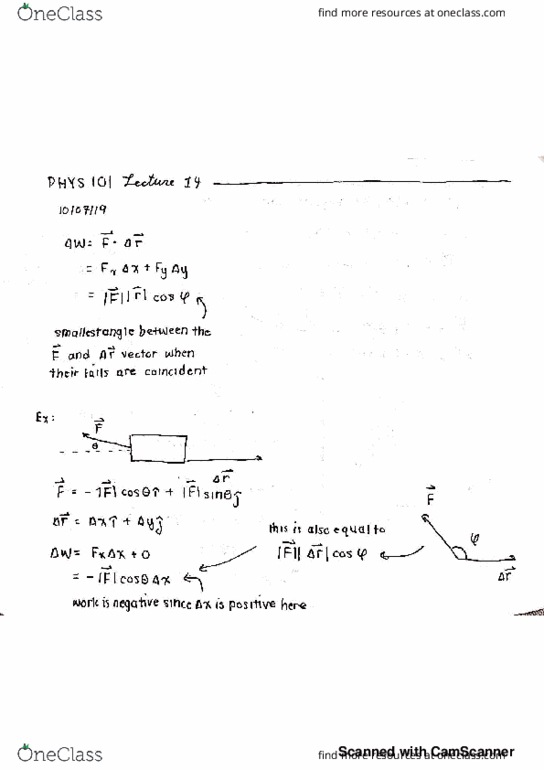 OneClass
find more resources at oneclass.com
PHYS 101 Lecture 14
10/07/19
ΔW = F⃗ · Δr⃗
= Fx Δx + Fy Δy
= |F⃗||r⃗| cos φ
smallest angle between the
F⃗ and Δr⃗ vector when
their tails are coincident
Ex:
F⃗
θ
Δr⃗
F⃗ = -|F⃗| cosθ î + |F⃗| sinθ ĵ
Δr⃗ = Δx î + Δy ĵ
ΔW = FxΔx + 0
= -|F⃗| cosθ Δx
work is negative since Δx is positive here
this is also equal to
|F⃗|| Δr⃗| cos φ
F⃗
φ
Δr⃗
OneClass
find more resources at oneclass.com
Scanned with CamScanner